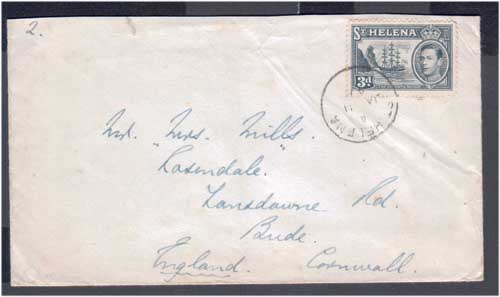 2.
ST HELENA
3d
ST HELENA
Mr. "Mrs. Mills."
Rosendale.
Lansdowne Rd.
Bude.
England. Cornwall.